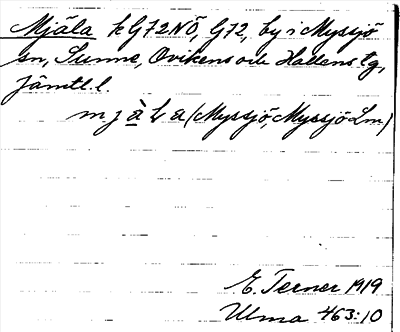 Mjäla k G72NÖ, G72, by i Myssjö
sn, Sunne, Ovikens och Hallens tg,
Jämtl. l.
m j à l a (Myssjö, Myssjö Lm)
E. Terner 1919
Ulma 463:10